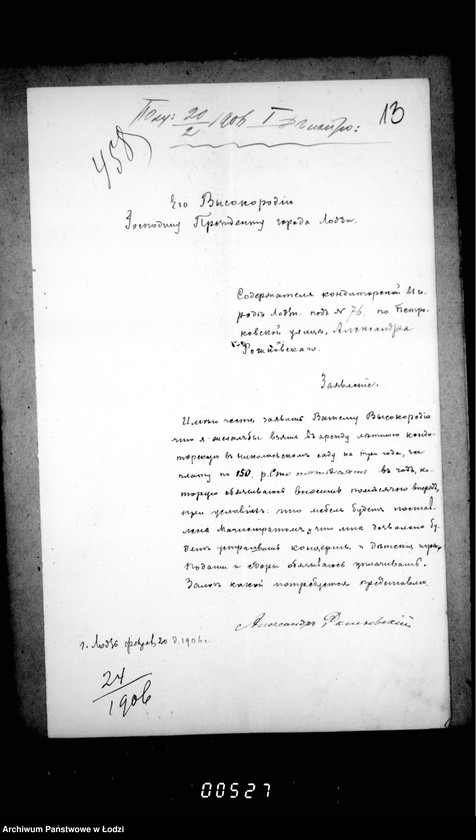 Полу: 20/2 1906 I
13
458
Его Высокородію
Господину Президенту города Лодзи.
Содержателя кондиторской въ го-
родѣ Лодзи подъ № 76. по Петро-
ковской улицѣ, Александра
Рошковскаго.
Заявленіе.
Имѣю честь заявить Вашему Высокородію
что я желалъ бы взять въ аренду лѣтнюю конди-
торскую въ Николаевскомъ саду на три года, за
плату по 150. р. Сто пятьдесятъ въ годъ, ко-
торую обязываюсь вносить помѣсячно впередъ,
при условіи: что мебель будетъ постав-
лена Магистратомъ, что мнѣ дозволено бу-
детъ устраивать концерты и дѣтскія игры,
Подати и сборы обязываюсь уплачивать.
Залогъ какой потребуется представлю.
Александръ Рошковскій
г. Лодзь февраля 20 д. 1906 г.
24/1906
00527
Archiwum Państwowe w Łodzi